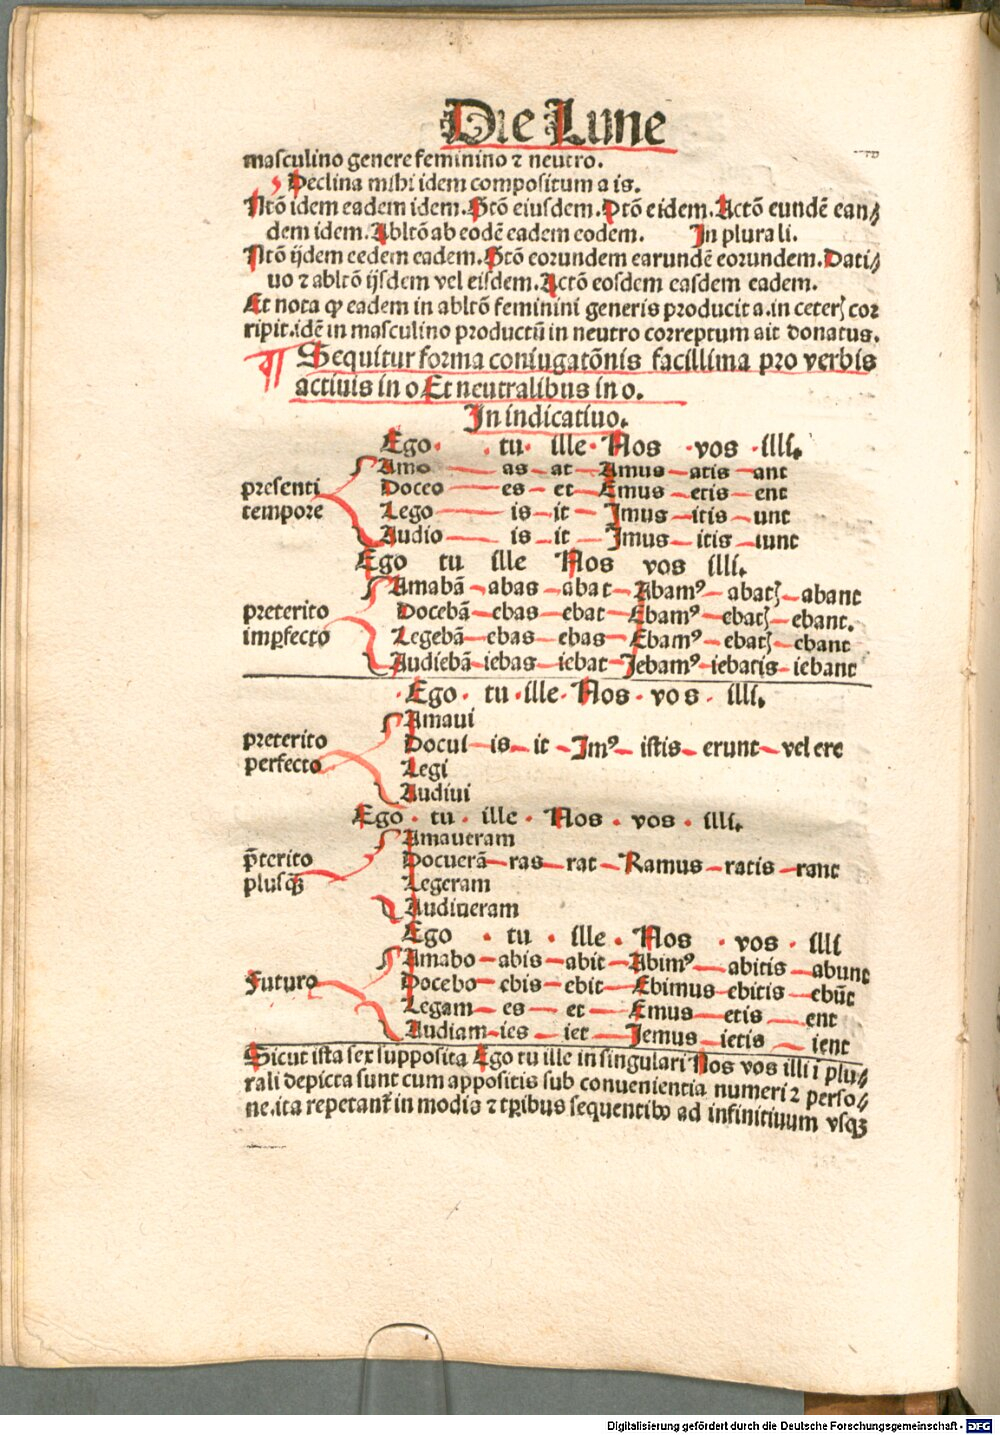 Die Lune
masculino genere feminino ⁊ neutro.
Declina mihi idem compositum a is.
Ntō idem eadem idem. Gtō eiusdem. Dtō eidem. Actō eundē ean⸗
dem idem. Abltō ab eodē eadem eodem. In plurali.
Ntō ijdem eedem eadem. Gtō eorundem earundē eorundem. Dati⸗
uo ⁊ abltō ijsdem vel eisdem. Actō eosdem easdem eadem.
Et nota ꝙ eadem in abltō feminini generis producit a. in ceterꝭ cor
ripit. idē in masculino productū in neutro correptum ait donatus.
¶ Sequitur forma coniugatōnis facillima pro verbis
actiuis in o Et neutralibus in o.
In indicatiuo.
Ego tu ille Nos vos illi.
presenti tempore
Amo as at Amus atis ant
Doceo es et Emus etis ent
Lego is it Imus itis unt
Audio is it Imus itis iunt
Ego tu ille Nos vos illi.
preterito imꝑfecto
Amabā abas abat Abamꝰ abatꝭ abant
Docebā ebas ebat Ebamꝰ ebatꝭ ebant.
Legebā ebas ebas Ebamꝰ ebatꝭ ebant
Audiebā iebas iebat Iebamꝰ iebatis iebant
Ego tu ille Nos vos illi.
preterito perfecto
Amaui
Docui is it Imꝰ istis erunt vel ere
Legi
Audiui
Ego tu ille Nos vos illi.
p̄terito plusqꝫ̄
Amaueram
Docuerā ras rat Ramus ratis rant
Legeram
Audiueram
Ego tu ille Nos vos illi
Futuro
Amabo abis abit Abimꝰ abitis abunt
Docebo ebis ebit Ebimus ebitis ebūt
Legam es et Emus etis ent
Audiam ies iet Iemus ietis ient
Sicut ista sex supposita Ego tu ille in singulari Nos vos illi i plu⸗
rali depicta sunt cum appositis sub conuenientia numeri ⁊ perso⸗
ne. ita repetant᷑ in modis ⁊ tꝑibus sequentibꝰ ad infinitiuum vsqꝫ
Digitalisierung gefördert durch die Deutsche Forschungsgemeinschaft - DFG